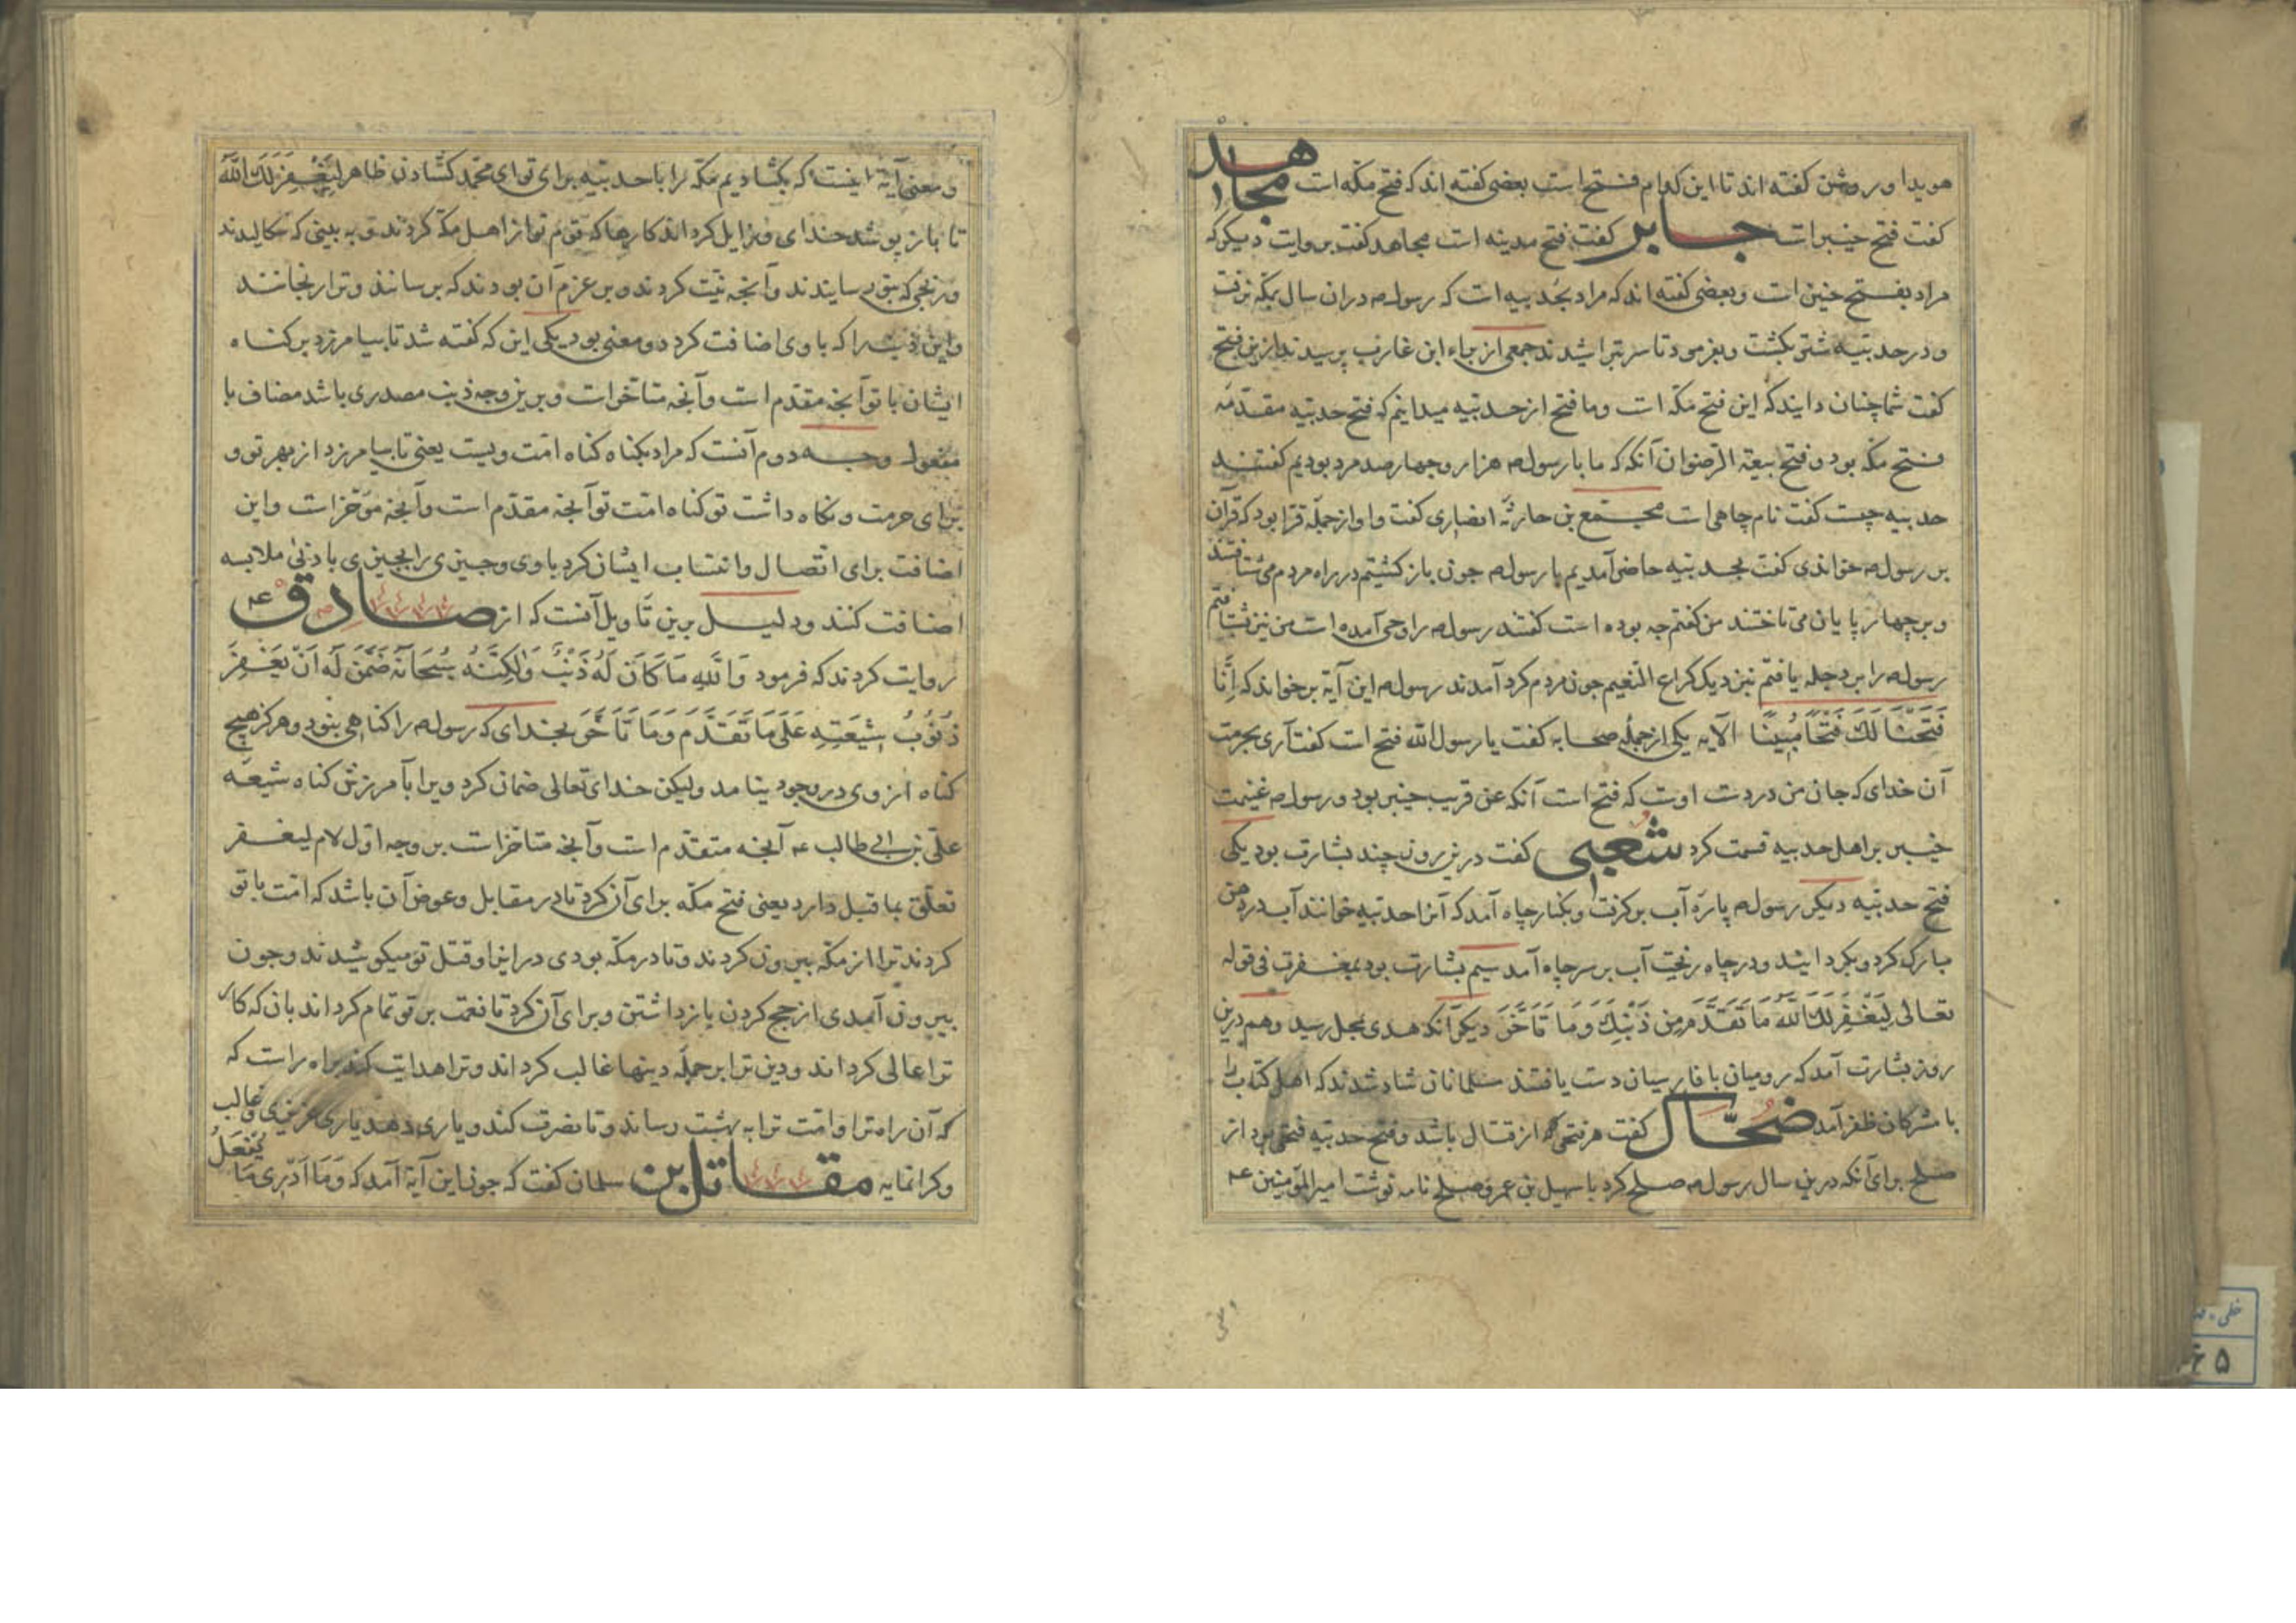 هویدا و روشن گفته اند تا این کدام فتح است بعضی گفته اند که فتح مکه است مجاهد
گفت فتح خیبر است جابر گفت فتح مدینه است مجاهد گفت بروایت دیگر که
مراد بفتح حنین است و بعضی گفته اند که مراد بحُدیبیه است که رسول ص دران سال بمکه نرفت
و در حدیبیه شتر بکشت و بفرمود تا سر بتراشیدند جمعی از براء ابن عازب پرسیدند ازین فتح
گفت شما چنان دانید که این فتح مکه است و ما فتح از حدیبیه میدانیم که فتح حدیبیه مقدّمه
فتح مکه بود و فتح بیعة الرضوان آنکه که ما با رسول ص هزار و چهار صد مرد بودیم گفتند
حدیبیه چیست گفت نام چاهی است مجتمع بن حارثه انصاری گفت و او از جمله قرّا بود که قرآن
بر رسول ص خواندی گفت بحدیبیه حاضر آمدیم با رسول ص چون باز گشتیم در راه مردم می شتافتند
و بر چهار پایان می تاختند من گفتم چه بوده است گفتند رسول ص را وحی آمده است من نیز شتافتم
رسول ص را بر دجله یافتم نزدیک کراع النعیم چون مردم گرد آمدند رسول ص این آیة برخواند که اِنَّا
فَتَحْنَا لَكَ فَتْحًا مُبِینًا الآیه یکی از جمله صحابه گفت یا رسول الله فتح است گفت آری بحرمت
آن خدای که جان من در دست اوست که فتح است آنکه عن قریب خیبر بود و رسول ص غنیمت
خیبر بر اهل حدیبیه قسمت کرد شعبی گفت درین روز چند بشارت بود یکی
فتح حدیبیه دیگر رسول ص پاره آب برگرفت و بکنار چاه آمد که آنرا حدیبیه خوانند آب در دهن
مبارک کرد و بگردانید و در چاه ریخت آب بر سر چاه آمد سیم بشارت بود بمغفرت فی قوله
تعالی لِیَغْفِرَ لَكَ اللّٰهُ مَا تَقَدَّمَ مِن ذَنْبِكَ وَمَا تَأَخَّرَ دیگر آنکه هدی بمحل رسید و هم درین
روز بشارت آمد که رومیان با فارسیان دست یافتند مسلمانان شاد شدند که اهل کتاب را
با مشرکان ظفر آمد ضحّاک گفت هر فتحی که از قتال باشد و فتح حدیبیه فتحی بود از
صلح برای آنکه درین سال رسول ص صلح کرد با سهیل بن عمرو و صلح نامه نوشت امیر المؤمنین ع
و معنی آیة اینست که بگشادیم مکه را با حدیبیه برای تو ای محمّد گشادن ظاهر لِیَغْفِرَ لَكَ اللّٰهُ
تا باز پوشد خدای و زایل کرداند کارها که قوم تو از اهل مکه کردند و به بینی که سکالیدند
و رنجی که بتو رسانیدند و آنچه نیّت کردند و بر عزم آن بودند که برسانند و ترا رنجانند
و این ذنب را که با وی اضافت کرد دو معنی بود یکی این که گفته شد تا بیامرزد بر گناه
ایشان با تو آنچه مقدّم است و آنچه متأخر است و برین وجه ذنب مصدری باشد مضاف با
مفعول وجه دوم آنست که مراد بگناه گناه امّت ویست یعنی تا بیامرزد از بهر تو و
برای حرمت و نگاه داشت تو گناه امّت تو آنچه مقدّم است و آنچه مؤخّر است و این
اضافت برای اتّصال و انتساب ایشان کرد با وی و چیزی را بچیزی با دنیٰ ملابسه
اضافت کنند و دلیل برین تاویل آنست که از صادق ع
روایت کردند که فرمود وَاللّٰهِ مَا كَانَ لَهُ ذَنْبٌ وَلٰكِنَّهُ سُبْحَانَهُ ضَمَّنَ لَهُ اَنْ یَغْفِرَ
ذُنُوبَ شِیعَتِهِ عَلَی مَا تَقَدَّمَ وَمَا تَأَخَّرَ بخدای که رسول ص را گناهی نبود و هرگز هیچ
گناه از وی در وجود نیامد ولیکن خدای تعالی ضمان کرد ویرا بآمرزش گناه شیعه
علی بن ابی طالب ع آنچه متقدّم است و آنچه متاخر است بر وجه اوّل لام لیغفر
تعلّق بما قبل دارد یعنی فتح مکّه برای آن کرد تا در مقابل و عوض آن باشد که امّت با تو
کردند ترا از مکّه بیرون کردند و تا در مکه بودی در ایذا و قتل تو میکوشیدند و چون
بیرون آمدی از حج کردن باز داشتن و برای آن کرد تا نعمت بر تو تمام کرداند بان که کار
ترا عالی کرداند و دین ترا بر جمله دینها غالب کرداند و ترا هدایت کند براه راست که
که آن راه ترا و امّت ترا به بهشت رساند و تا نصرت کند و یاری دهد یاری عزیزی و غالب
و کرانمایه مقاتل بن سلمان گفت که چون این آیة آمد که وَمَا اَدْرِی مَا یُفْعَلُ